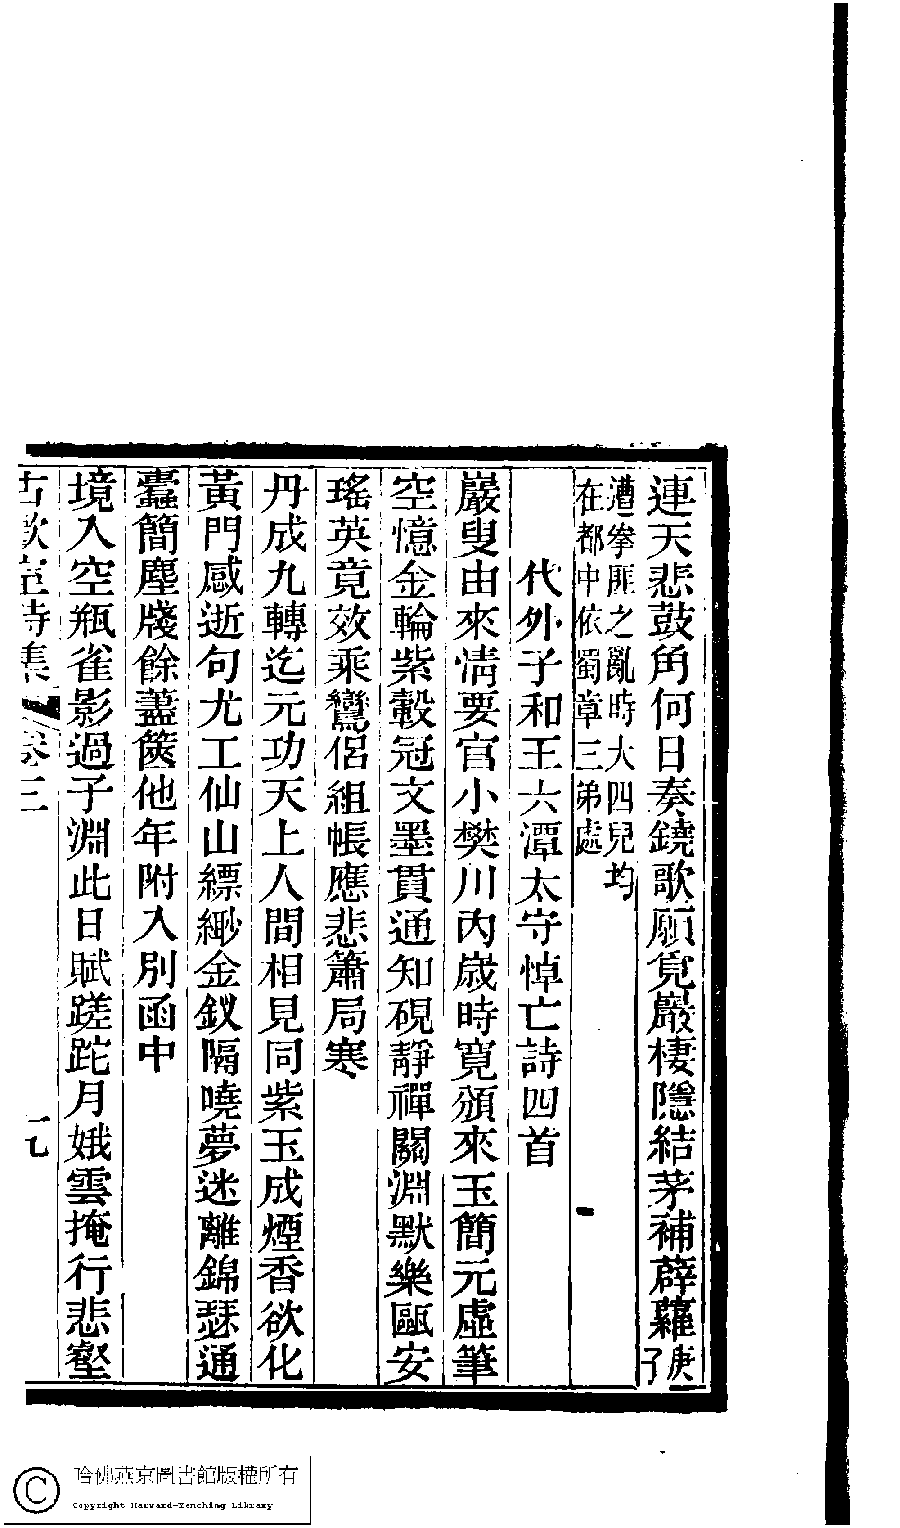 連天悲鼓角何日奏鐃歌願覓巖棲隱結茅補薜蘿庚子
遭拳匪之亂時大四兒均
在都中依蜀章三弟處
代外子和王六潭太守悼亡詩四首
巖叟由來情要官小樊川內歲時寬頒來玉簡元虛筆
空憶金輪紫轂冠文墨貫通知硯靜禪關淵默樂甌安
瑤英竟效乘鸞侶組帳應悲簫局寒
丹成九轉迄元功天上人間相見同紫玉成煙香欲化
黃門感逝句尤工仙山縹緲金釵隔曉夢迷離錦瑟通
蠹簡塵牋餘藎篋他年附入別函中
境入空瓶雀影過子淵此日賦蹉跎月娥雲掩行悲壑
古歡室詩集 卷三 九
哈佛燕京圖書館版權所有
Copyright Harvard-Yenching Library